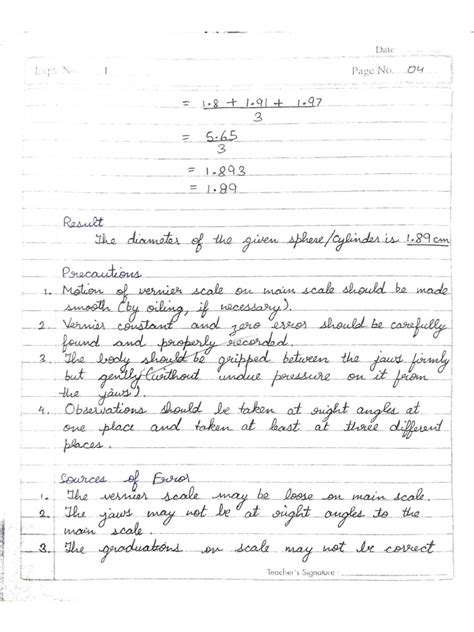 Date
Expt. No. 1
Page No. 04
= 1.8 + 1.91 + 1.97
3
= 5.65
3
= 1.893
= 1.89
Result
The diameter of the given sphere/cylinder is 1.89 cm
Precautions
1. Motion of vernier scale on main scale should be made
smooth (by oiling, if necessary).
2 Vernier constant and zero error should be carefully
found and properly recorded.
3. The body should be gripped between the jaws firmly
but gently (without undue pressure on it from
the jaws).
4. Observations should be taken at right angles at
one place and taken at least at three different
places.
Sources of Error
1. The vernier scale may be loose on main scale.
2. The jaws may not be at right angles to the
main scale.
3. The graduations on scale may not be correct
Teacher's Signature :